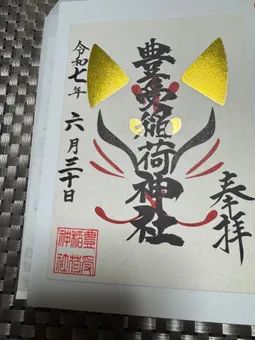 奉拝
豊受稲荷神社
令和七年
六月三十日
豊受
稲荷
神社